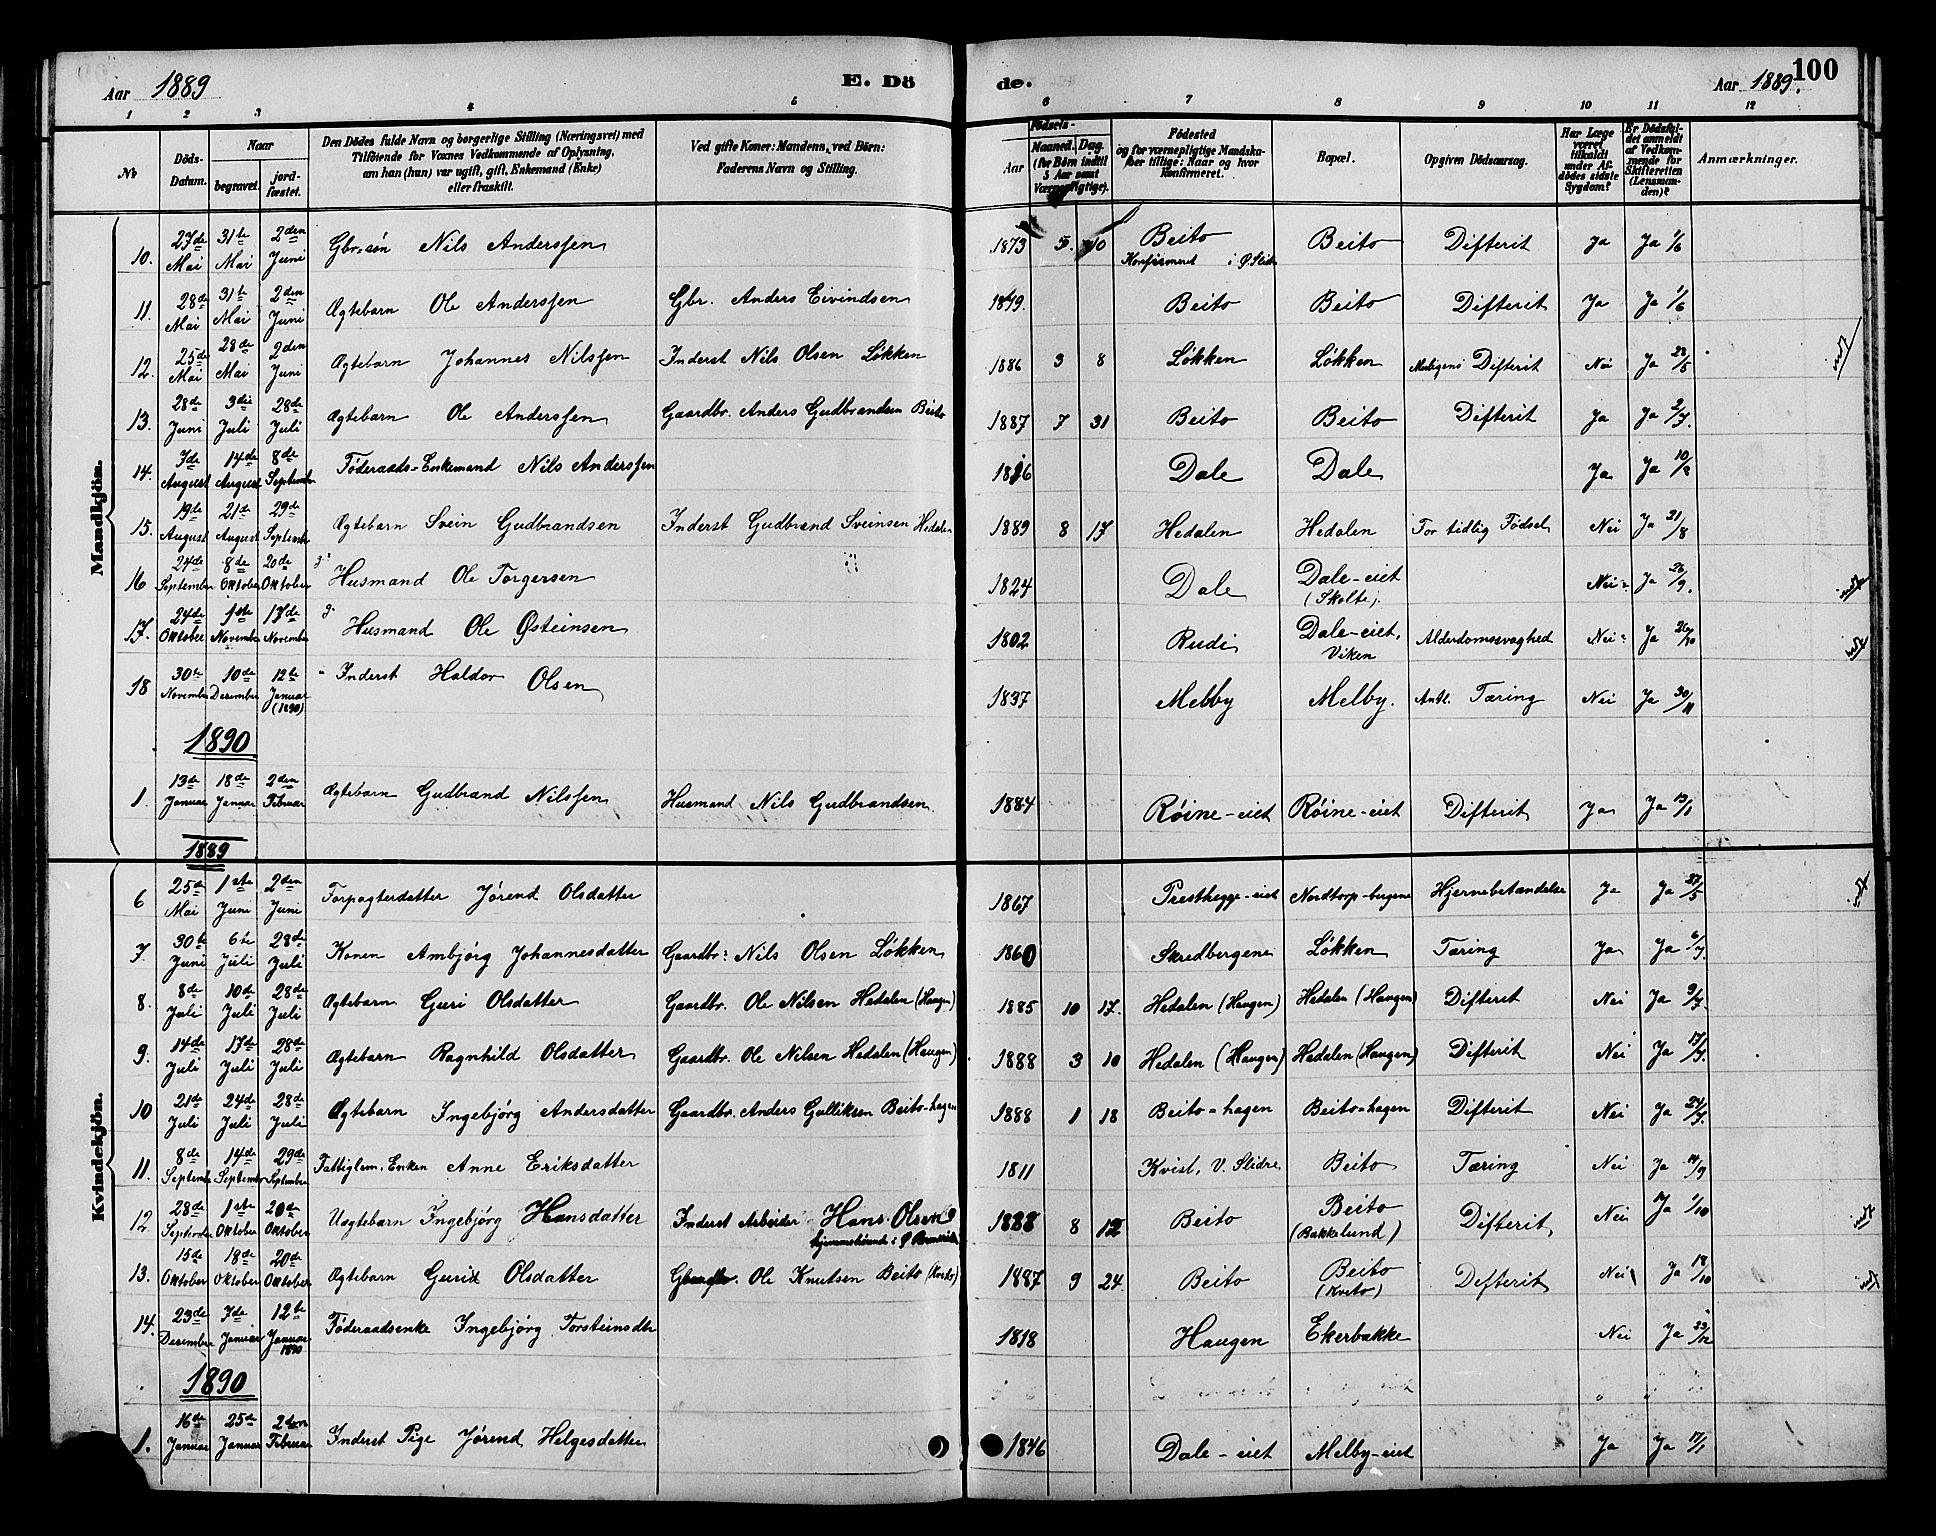 Aar 1889
E. Dö
de.
Aar 1889.
100
1 2 3 4 5 6 7 8 9 10 11 12
No
Döds-Datum.
Naar
begravet.
jord-fæstet.
Den Dödes fulde Navn og borgerlige Stilling (Næringsvei) med
Tilföiende for Voxnes Vedkommende af Oplysning,
om han (hun) var ugift, gift, Enkemand (Enke)
eller fraskilt.
Ved gifte Koner: Mandens, ved Börn:
Faderens Navn og Stilling.
Födsels-
Aar
Maaned. Dag.
(for Börn indtil
5 Aar samt
Værnepligtige).
Födested
og for værnepligtige Mandska-
ber tillige: Naar og hvor
konfirmeret.
Bopæl.
Opgiven Dödsaarsag.
Har Læge
været
tilkaldt
under Af-
dödes sidste
Sygdom?
Er Dödsfal-
det anmeldt
af Vedkom-
mende for
Skifteretten
(Lensman-
den)?
Anmærkninger.
Mandkjön.
10. 27de Mai 31te Mai 2den Juni Gbr.sön Nils Anderssen 1873 5. 10 Beito Konfirmeret i Ø Slidre Beito Difterit Ja Ja 1/6
11. 28de Mai 31te Mai 2den Juni Ægtebarn Ole Anderssen Gbr. Anders Eivindsen 1879. Beito Beito Difterit Ja Ja 1/6
12. 25de Mai 28de Mai 2den Juni Ægtebarn Johannes Nilssen Inderst Nils Olsen Løkken 1886 3 8 Løkken Løkken Muligens Difterit Nei Ja 28/5
13. 28de Juni 3die Juli 28de Juli Ægtebarn Ole Anderssen Gaardbr. Anders Gudbrandsen Beito 1887 7 31 Beito Beito Difterit Ja Ja 2/7.
14. 7de August 14de August 8de September Föderaads-Enkemand Nils Anderssen 1816 Dale Dale Ja Ja 10/8
15. 19de August 21de August 29de September Ægtebarn Svein Gudbrandsen Inderst Gudbrand Sveinsen Hedalen 1889 8 17 Hedalen Hedalen For tidlig Födsel Nei Ja 21/8
16 24de September 8de Oktober 20de Oktober Husmand Ole Torgersen 1824 Dale Dale-eiet (Skolte). Nei Ja 26/9.
17. 24de Oktober 1ste November 17de November Husmand Ole Østeinsen 1802 Rudi Dale-eiet, Viken Alderdomssvaghed Nei Ja 26/10
18 30te November 10de Desember 12te Januar (1890) Inderst Haldor Olsen 1837 Melby Melby. Antl. Tæring Nei Ja 30/11
1890
1. 13de Januar 18de Januar 2den Februar Ægtebarn Gudbrand Nilssen Husmand Nils Gudbrandsen 1884 Røine-eiet Røine-eiet Difterit Ja Ja 13/1
1889
Kvindekjön.
6 25de Mai 1ste Juni 2den Juni Forpagterdatter Jørend Olsdatter 1867 Presthegge-eiet Nordtorp-bergene Hjernebetændelse Ja Ja 27/5
7. 30te Juni 6te Juli 28de Juli Konen Ambjørg Johannesdatter Gaardbr: Nils Olsen Løkken 1860 Skredbergene Løkken Tæring Ja Ja 6/7.
8. 8de Juli 10de Juli 28de Juli Ægtebarn Guri Olsdatter Gaardbr. Ole Nilsen Hedalen (Haugen) 1885 10 17. Hedalen (Haugen) Hedalen (Haugen) Difterit Nei Ja 9/7.
9. 14de Juli 17de Juli 28de Juli Ægtebarn Ragnhild Olsdatter Gaardbr. Ole Nilsen Hedalen (Haugen) 1888 3 10 Hedalen (Haugen) Hedalen (Haugen) Difterit Nei Ja 17/7.
10 21de Juli 24de Juli 28de Juli Ægtebarn Ingebjørg Andersdatter Gaardbr. Anders Gulliksen Beito-hagen 1888 1 18 Beito-hagen Beito-hagen Difterit Nei Ja 24/7.
11. 8de September 14de September 29de September Fattiglem, Enken Anne Eriksdatter 1811 Kvist, V. Slidre Beito Tæring Nei Ja 14/9
12. 28de September 1ste Oktober 20de Oktober Uægtebarn Ingebjørg Hansdatter Inderst Arbeider Hans Olsen 1888 8 12 Beito Beito (Bakkelund) Difterit, Nei Ja 1/10
13. 15de Oktober 18de Oktober 20de Oktober Ægtebarn Gurid Olsdatter Ole Knutsen Beito 1887 9 24. Beito Beito Difterit Nei Ja 18/10
14. 23de Desember 7de Januar 12te Januar 1890 Föderaadsenke Ingebjørg Torsteinsdtr 1818 Haugen Ekerbakke Nei Ja
1890
1. 16de Januar 25de Januar 2den Februar Inderst Pige Jørend Helgesdatter 1846 Dale-eiet Melby-eiet Ja Ja 17/1